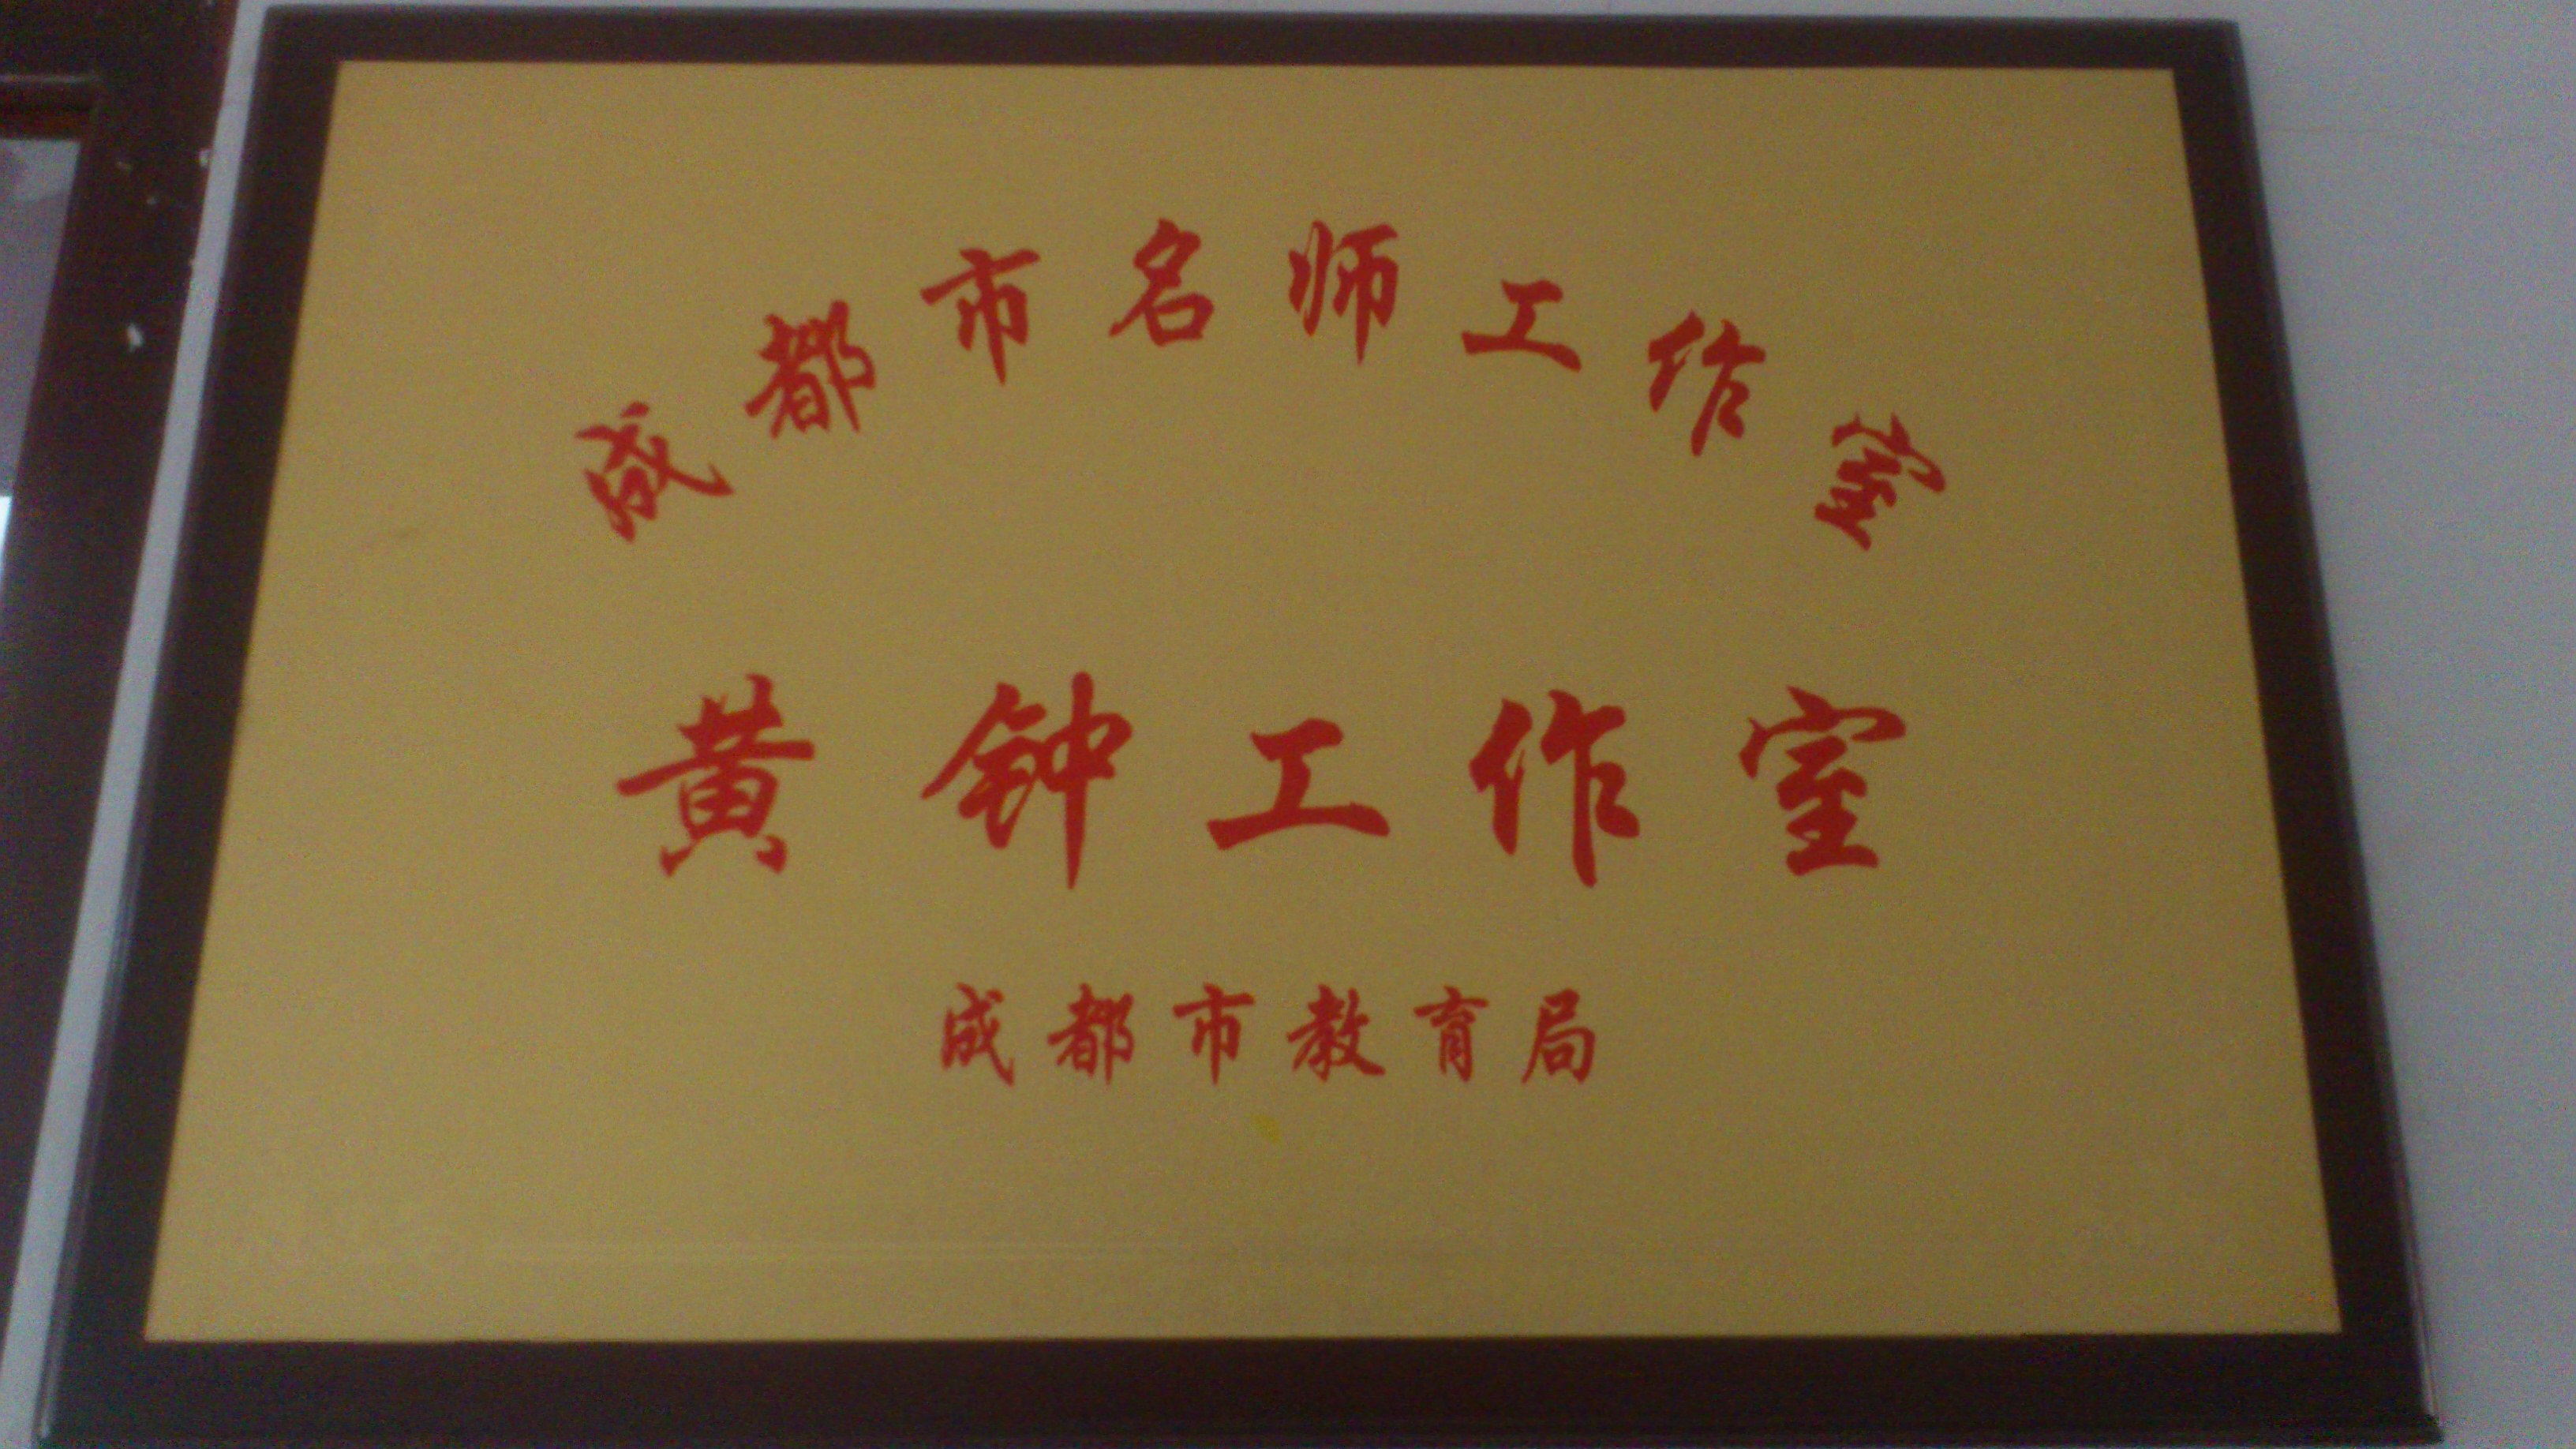 成都市名师工作室
黄钟工作室
成都市教育局